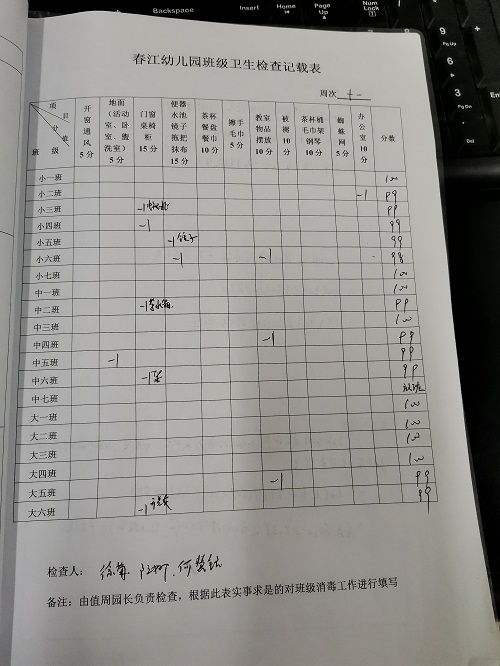 Backspace
Insert
Home
Page Up
Num Lock
PgUp
9
PgDn
3
Del
Enter
春江幼儿园班级卫生检查记载表
周次 十一
项目 分值 班级 开窗通风5分 地面（活动室、卧室、盥洗室）5分 门窗桌椅柜15分 便器水池镜子拖把抹布15分 茶杯餐盘餐巾10分 擦手毛巾5分 教室物品摆放10分 被褥10分 茶杯桶毛巾架钢琴10分 蜘蛛网5分 办公室10分 分数
小一班 100
小二班 -1 99
小三班 -1 99
小四班 -1 99
小五班 -1 99
小六班 -1 -1 98
小七班 100
中一班 100
中二班 -1 99
中三班 100
中四班 -1 99
中五班 -1 99
中六班 -1 99
中七班
大一班 100
大二班 100
大三班 100
大四班 100
大五班 -1 99
大六班 -1 99
检查人：
备注：由值周园长负责检查，根据此表实事求是的对班级消毒工作进行填写